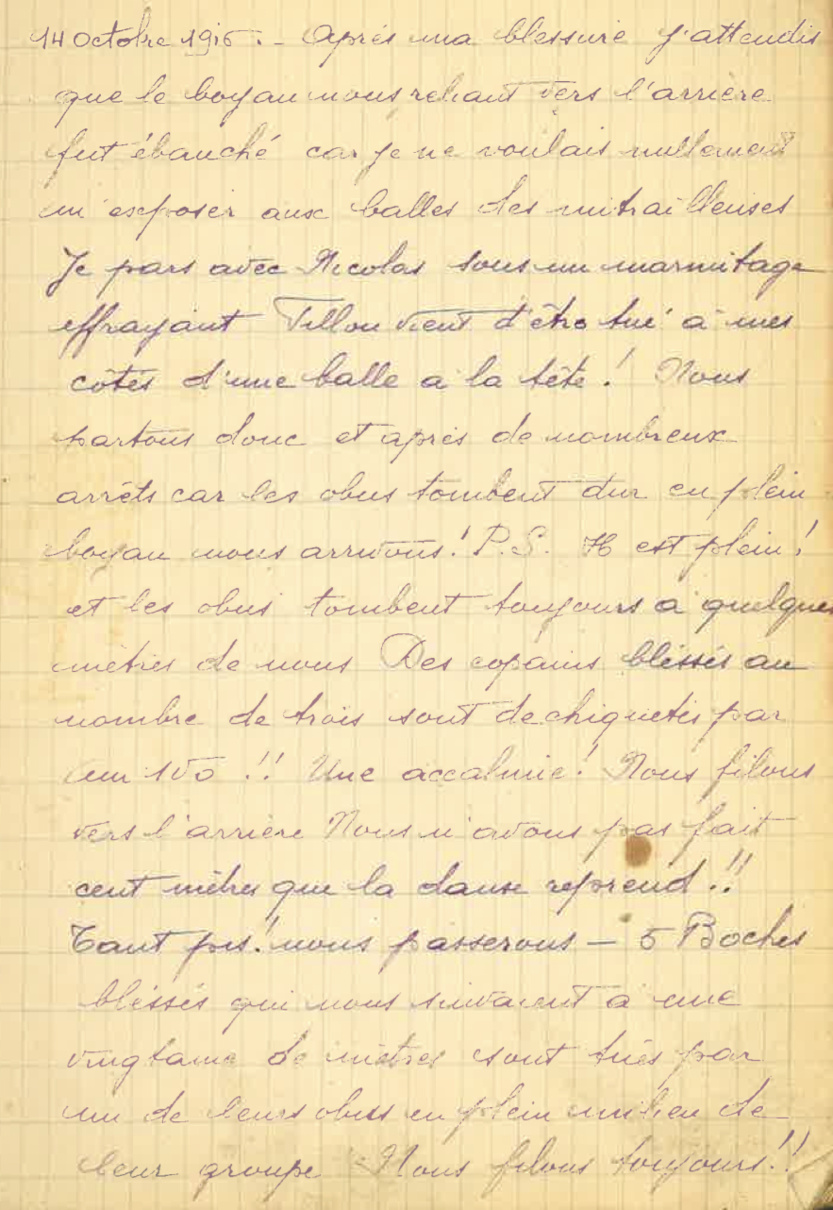 14 Octobre 1915. - Après ma blessure j'attendis
que le boyau nous reliant vers l'arrière
fut ébauché car je ne voulais nullement
m'exposer aux balles des mitrailleuses
Je pars avec Nicolas sous un marmitage
effrayant Tillou vient d'être tué à mes
côtés d'une balle a la tête ! Nous
partons donc et après de nombreux
arrêts car les obus tombent dur en plein
boyau nous arrivons ! P.S. est plein !
et les obus tombent toujours a quelques
mètres de nous Des copains bléssés au
nombre de trois sont dechiquetés par
un 150 !! Une accalmie ! Nous filons
vers l'arrière Nous n'avons pas fait
cent mètres que la danse reprend !!
Tant pis ! nous passerons - 5 Boches
bléssés qui nous suivaient a une
vingtaine de mètres sont tués par
un de leurs obus en plein milieu de
leur groupe Nous filons toujours !!